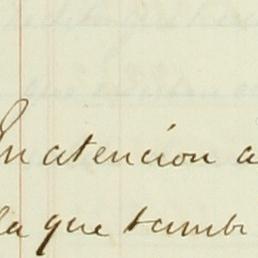 En atencion a
la que tambi